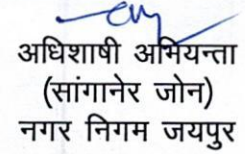 अधिशाषी अभियन्ता
(सांगानेर जोन)
नगर निगम जयपुर